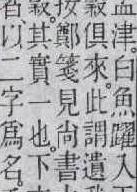 孟津白魚躍入
穀俱來此謂遺我
按鄭箋見尚書
穀其實一也下
以二字爲名